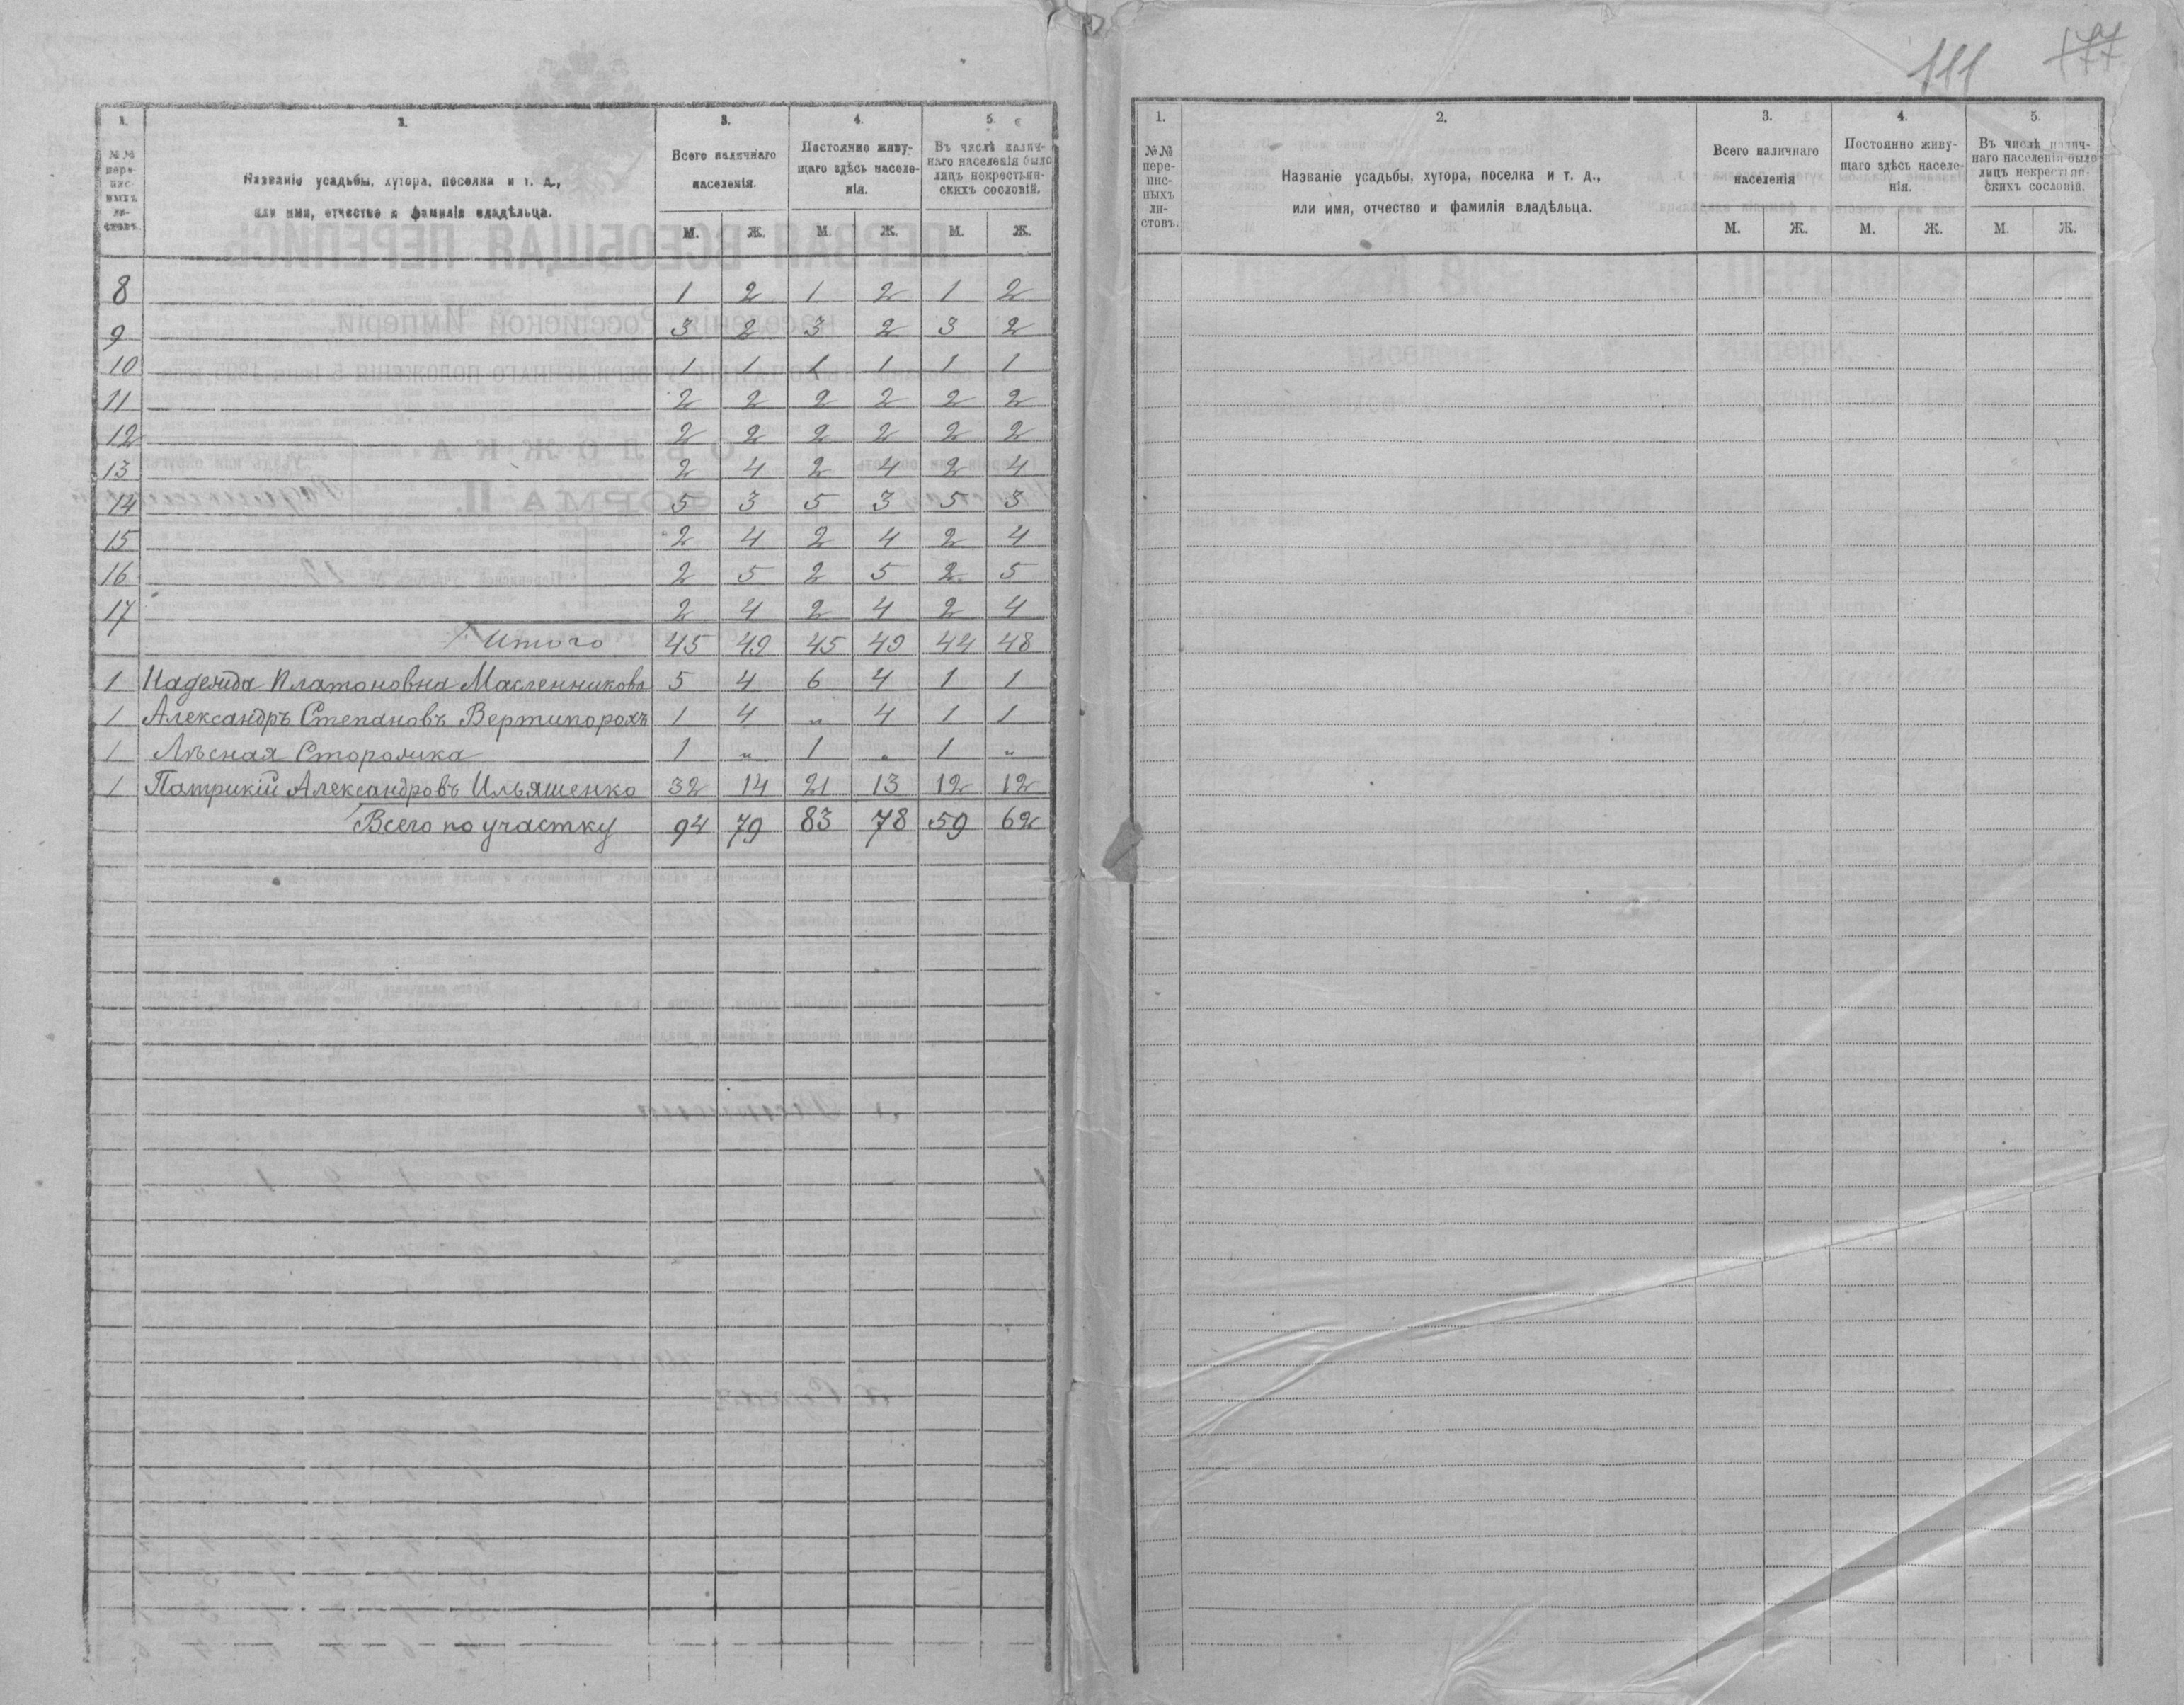 111 177
1. 2. 3. 4. 5.
№№ пере-писныхъ ли-стовъ. Названіе усадьбы, хутора, поселка и т. д., или имя, отчество и фамилія владѣльца. Всего наличнаго населенія. Постоянно живу-щаго здѣсь населе-нія. Въ числѣ налич-наго населенія было лицъ некрестьян-скихъ сословій.
М. Ж. М. Ж. М. Ж.
8 1 2 1 2 1 2
9 3 2 3 2 3 2
10 1 1 1 1 1 1
11 2 2 2 2 2 2
12 2 2 2 2 2 2
13 2 4 2 4 2 4
14 5 3 5 3 5 3
15 2 4 2 4 2 4
16 2 5 2 5 2 5
17 2 4 2 4 2 4
Итого 45 49 45 49 44 48
1 Надежда Платоновна Масленникова 5 4 6 4 1 1
1 Александръ Степановъ Вертипорохъ 1 4 „ 4 1 1
1 Лѣсная Сторожка 1 „ 1 „ 1 „
1 Патрикій Александровъ Ильяшенко 32 14 21 13 12 12
Всего по участку 94 79 83 78 59 62
1. 2. 3. 4. 5.
№№ пере-пис-ныхъ ли-стовъ. Названіе усадьбы, хутора, поселка и т. д., или имя, отчество и фамилія владѣльца. Всего наличнаго населенія Постоянно живу-щаго здѣсь населе-нія. Въ числѣ налич-наго населенія было лицъ некрестьян-скихъ сословій.
М. Ж. М. Ж. М. Ж.